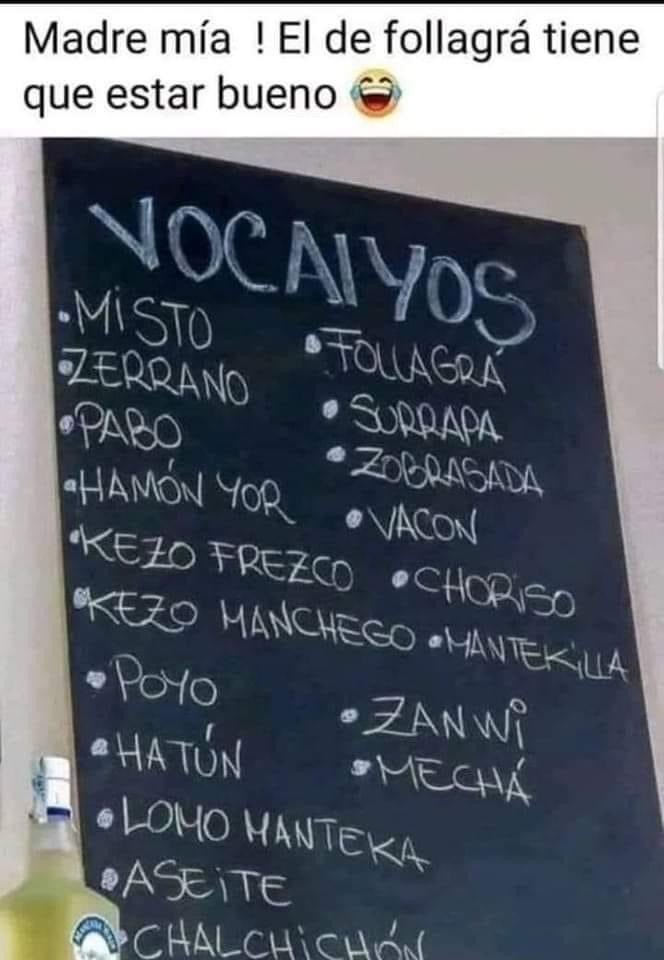 Madre mía ! El de follagrá tiene
que estar bueno 😂
VOCAIYOS
·MiSTO
·ZERRANO
·PABO
·HAMÓN YOR
·KEZO FREZCO
·KEZO MANCHEGO
·POYO
·HATÚN
·LOMO MANTEKA
·ASEiTE
·CHALCHiCHÓN
·FOLLAGRÁ
·SURRAPA
·ZOBRASADA
·VACON
·CHORiSO
·MANTEKiLLA
·ZANWi
·MECHÁ